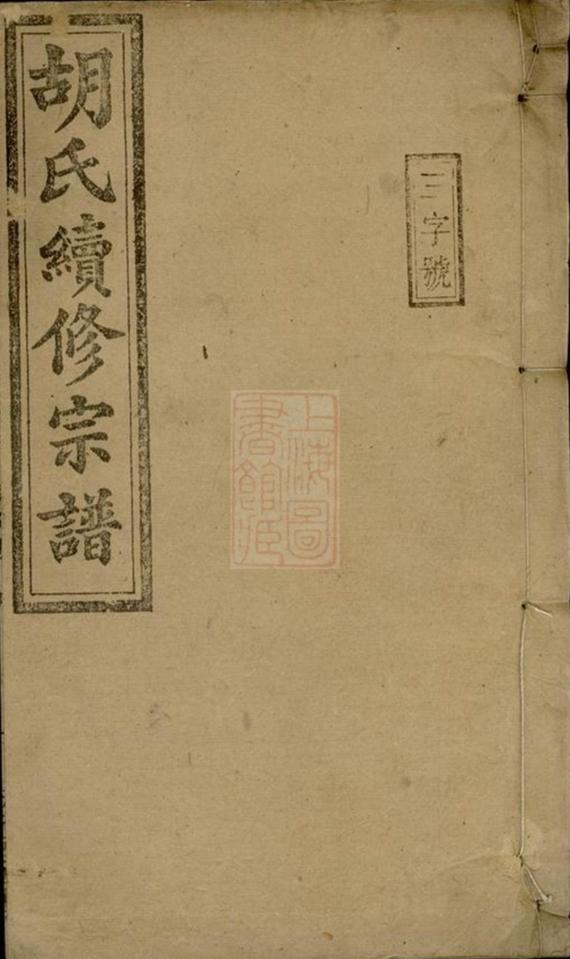 胡氏續修宗譜
三字號
上海圖
書館藏